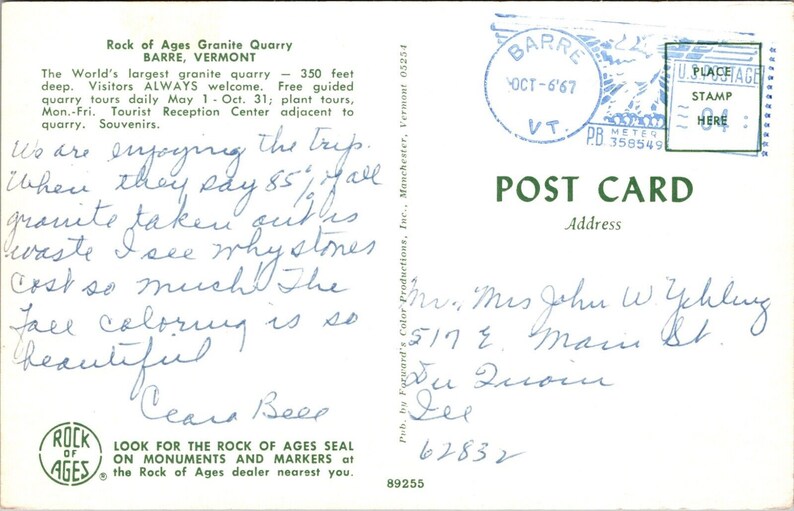 Rock of Ages Granite Quarry
BARRE, VERMONT
The World's largest granite quarry — 350 feet
deep. Visitors ALWAYS welcome. Free guided
quarry tours daily May 1 - Oct. 31; plant tours,
Mon.-Fri. Tourist Reception Center adjacent to
quarry. Souvenirs.
We are enjoying the trip.
When they say 85% of all
granite taken out is
waste I see why stones
cost so much! The
Fall coloring is so
beautiful
Clara Bell
ROCK
OF
AGES
®
LOOK FOR THE ROCK OF AGES SEAL
ON MONUMENTS AND MARKERS at
the Rock of Ages dealer nearest you.
Pub. by Forward's Color Productions, Inc., Manchester, Vermont 05254
89255
BARRE
OCT-6'67
VT.
P.B. METER
358549
U.S. POSTAGE
04
PLACE
STAMP
HERE
POST CARD
Address
Mr., Mrs John W.
517 E. Main St.
Du Quoin
Ill
62832